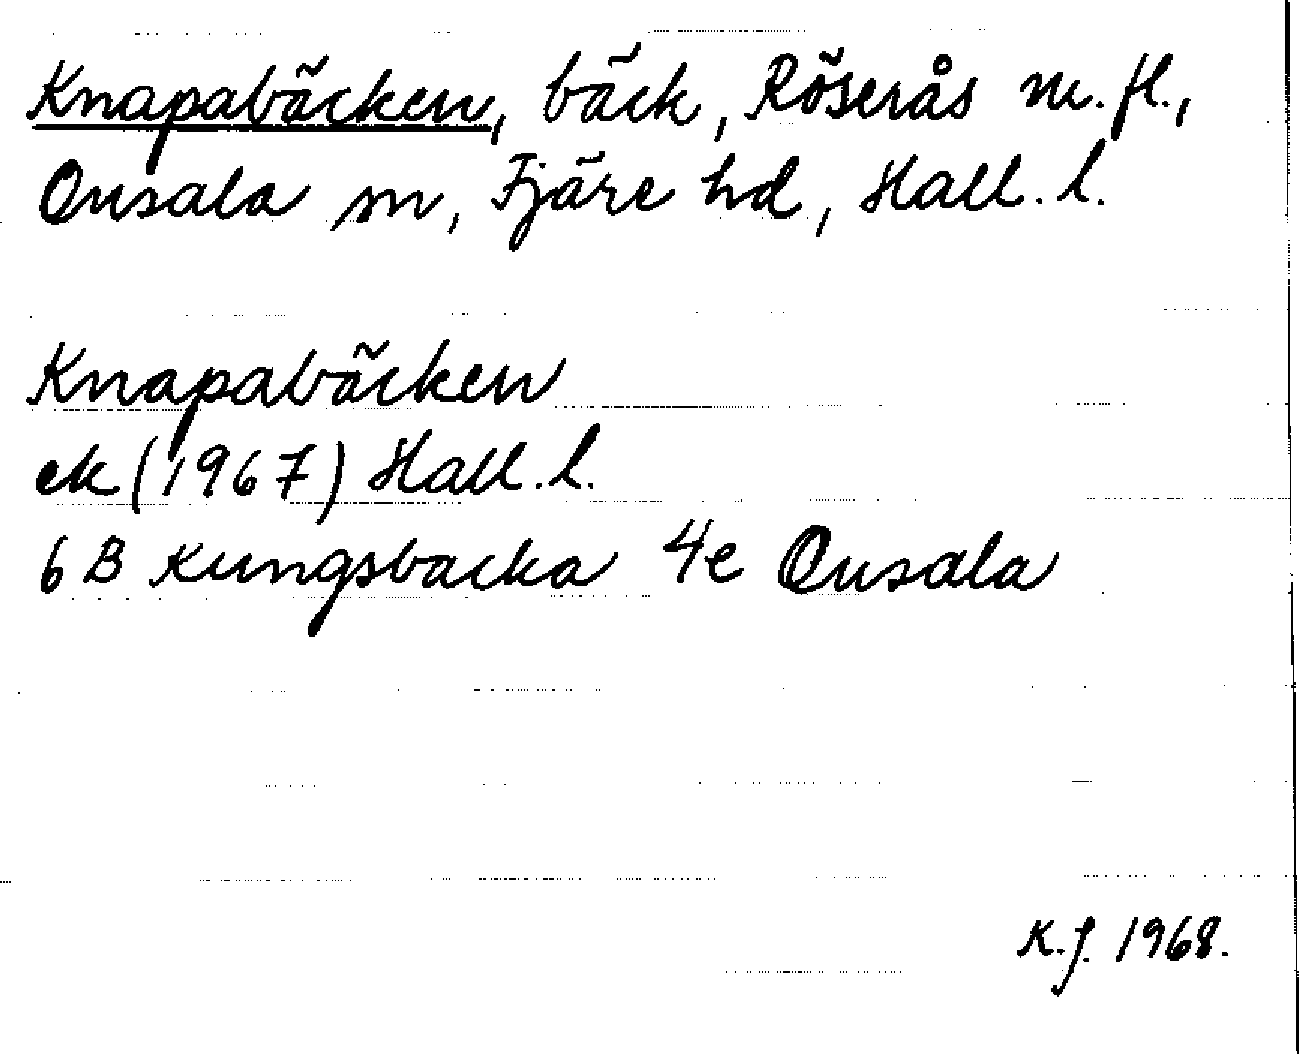 Knapabäcken, bäck, Röserås m.fl.,
Onsala sn, Fjäre hd, Hall. l.

Knapabäcken
ek (1967) Hall. l.
6 B Kungsbacka 4e Onsala

K.J. 1968.